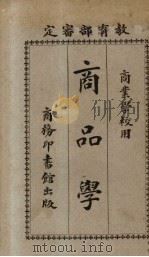 定審部育教
商業學校用
商品學
商務印書館出版
www.du8.com